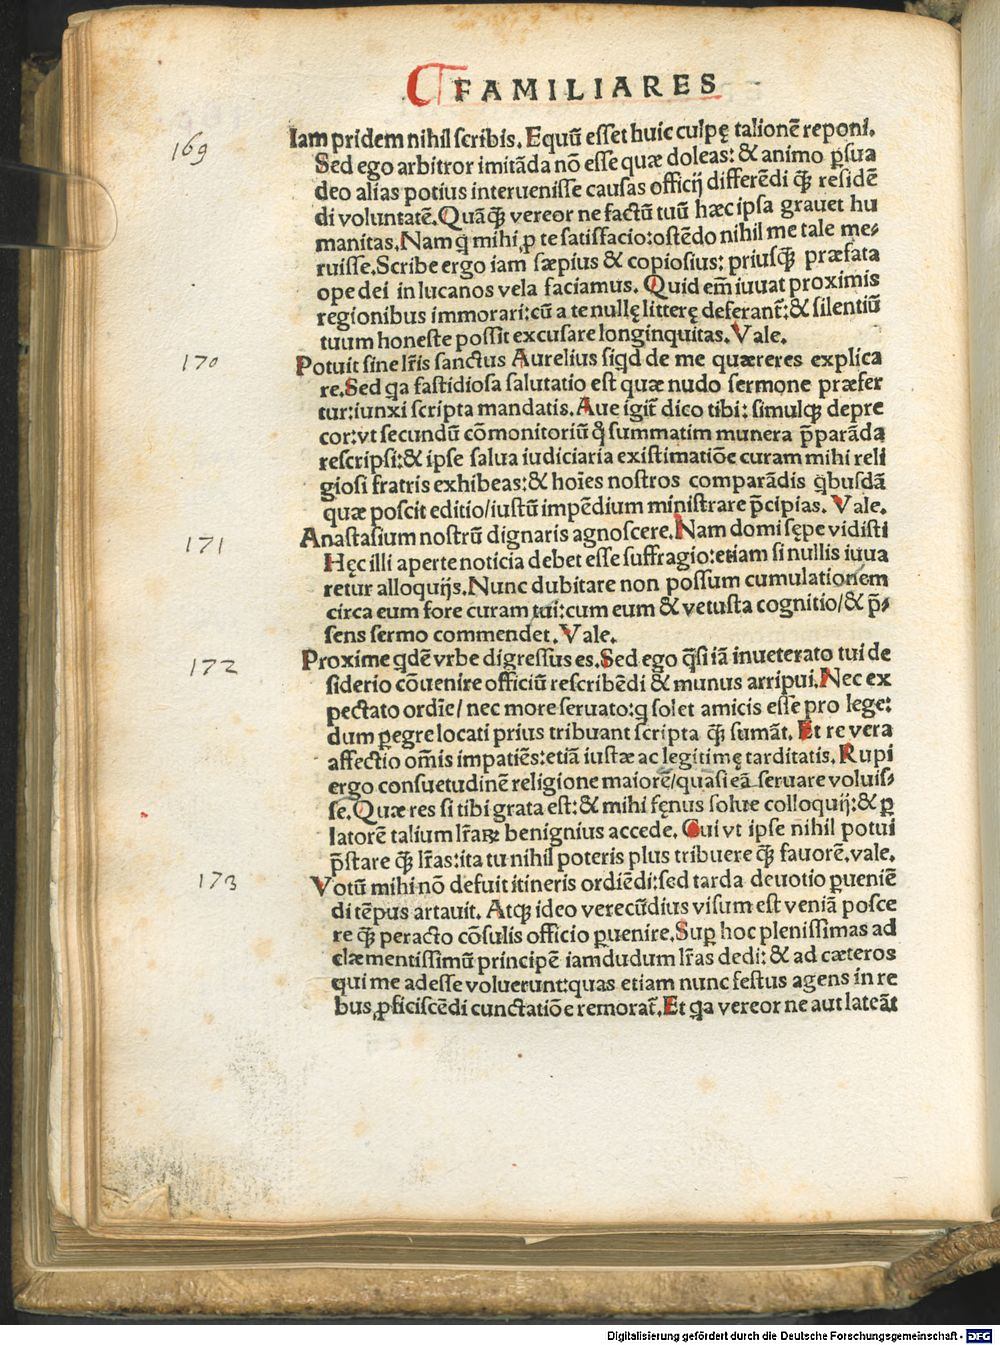 FAMILIARES
169
Iam pridem nihil scribis. Equũ esset huic culpę talionē reponi.
Sed ego arbitror imitãda nõ esse quæ doleas: & animo ꝑsua
deo alias potius interuenisse causas officij differēdi q̃ꝫ residē
di voluntatē. Quãq̃ꝫ vereor ne factũ tuũ hæc ipsa grauet hu
manitas. Nam q̃ mihi ꝓ te satisfacio: ostēdo nihil me tale me⸗
ruisse. Scribe ergo iam sæpius & copiosius: priusq̃ꝫ præfata
ope dei in lucanos vela faciamus. Quid em̃ iuuat proximis
regionibus immorari: cũ a te nullę litterę deferant̃: & silentiũ
tuum honeste possit excusare longinquitas. Vale.
170
Potuit sine lr̃is sanctus Aurelius siqd de me quæreres explica
re. Sed qa fastidiosa salutatio est quæ nudo sermone præfer
tur: iunxi scripta mandatis. Aue igit̃ dico tibi: simulqꝫ depre
cor: vt secundũ cõmonitoriũ q̃ summatim munera p̃parãda
rescripsi: & ipse salua iudiciaria existimatiõe curam mihi reli
giosi fratris exhibeas: & hoĩes nostros comparãdis qbusdã
quæ poscit editio/ iustũ impēdium ministrare p̃cipias. Vale.
171
Anastasium nostrũ dignaris agnoscere. Nam domi sępe vidisti
Hęc illi aperte noticia debet esse suffragio: etiam si nullis iuua
retur alloquijs. Nunc dubitare non possum cumulationem
circa eum fore curam tui: cum eum & vetusta cognitio/ & p̃⸗
sens sermo commendet. Vale.
172
Proxime qdē vrbe digressus es. Sed ego q̃si iã inueterato tui de
siderio cõuenire officiũ rescribēdi & munus arripui. Nec ex
pectato ordĩe/ nec more seruato: q solet amicis esse pro lege:
dum ꝑegre locati prius tribuant scripta q̃ꝫ sumãt. Et re vera
affectio om̃is impatiēs: etiã iustæ ac legitimę tarditatis. Rupi
ergo consuetudinē religione maiorē/ quasi eã seruare voluis⸗
se. Quæ res si tibi grata est: & mihi fęnus solue colloquij: & ꝑ
latorē talium lr̃aꝝ benignius accede. Cui vt ipse nihil potui
p̃stare q̃ꝫ lr̃as: ita tu nihil poteris plus tribuere q̃ꝫ fauorē. vale.
173
Votũ mihi nõ defuit itineris ordiēdi: sed tarda deuotio ꝑueniē
di tēpus artauit. Atqꝫ ideo verecũdius visum est veniã posce
re q̃ꝫ peracto cõsulis officio ꝑuenire. Suꝑ hoc plenissimas ad
clæmentissimũ principē iamdudum lr̃as dedi: & ad cæteros
qui me adesse voluerunt: quas etiam nunc festus agens in re
bus ꝓficiscēdi cunctatiõe remorat̃. Et qa vereor ne aut lateãt
Digitalisierung gefördert durch die Deutsche Forschungsgemeinschaft - DFG